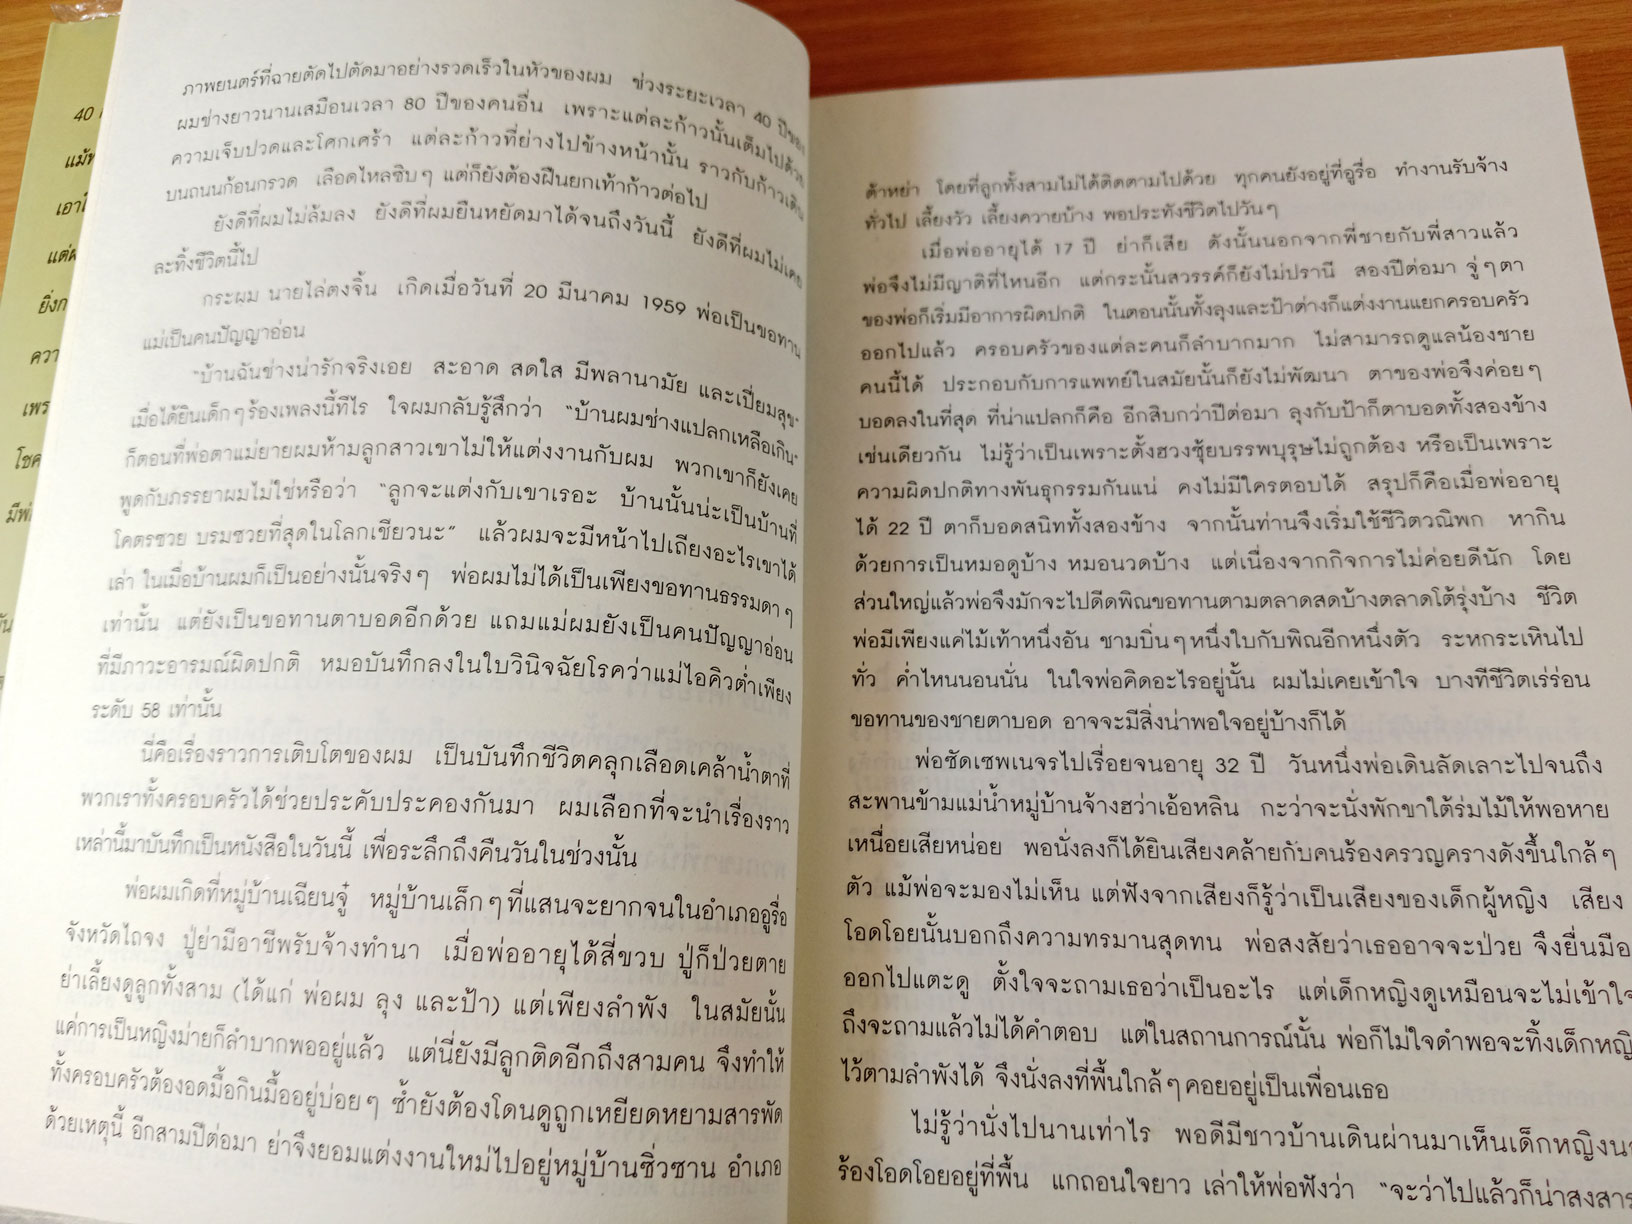 40
แม้
เอาใ
แต่
ยิ่งก
ควา
เพร
โชค
มีพ่
ภาพยนตร์ที่ฉายตัดไปตัดมาอย่างรวดเร็วในหัวของผม ช่วงระยะเวลา 40 ปีของ
ผมช่างยาวนานเสมือนเวลา 80 ปีของคนอื่น เพราะแต่ละก้าวนั้นเต็มไปด้วย
ความเจ็บปวดและโศกเศร้า แต่ละก้าวที่ย่างไปข้างหน้านั้น ราวกับก้าวเดิน
บนถนนก้อนกรวด เลือดไหลซิบๆ แต่ก็ยังต้องฝืนยกเท้าก้าวต่อไป
ยังดีที่ผมไม่ล้มลง ยังดีที่ผมยืนหยัดมาได้จนถึงวันนี้ ยังดีที่ผมไม่เคย
ละทิ้งชีวิตนี้ไป
กระผม นายไล่ตงจิ้น เกิดเมื่อวันที่ 20 มีนาคม 1959 พ่อเป็นขอทาน
แม่เป็นคนปัญญาอ่อน
"บ้านฉันช่างน่ารักจริงเอย สะอาด สดใส มีพลานามัย และเปี่ยมสุข"
เมื่อได้ยินเด็กๆร้องเพลงนี้ทีไร ใจผมกลับรู้สึกว่า "บ้านผมช่างแปลกเหลือเกิน"
ก็ตอนที่พ่อตาแม่ยายผมห้ามลูกสาวเขาไม่ให้แต่งงานกับผม พวกเขาก็ยังเคย
พูดกับภรรยาผมไม่ใช่หรือว่า "ลูกจะแต่งกับเขาเรอะ บ้านนั้นน่ะเป็นบ้านที่
โคตรซวย บรมซวยที่สุดในโลกเชียวนะ" แล้วผมจะมีหน้าไปเถียงอะไรเขาได้
เล่า ในเมื่อบ้านผมก็เป็นอย่างนั้นจริงๆ พ่อผมไม่ได้เป็นเพียงขอทานธรรมดาๆ
เท่านั้น แต่ยังเป็นขอทานตาบอดอีกด้วย แถมแม่ผมยังเป็นคนปัญญาอ่อน
ที่มีภาวะอารมณ์ผิดปกติ หมอบันทึกลงในใบวินิจฉัยโรคว่าแม่ไอคิวต่ำเพียง
ระดับ 58 เท่านั้น
นี่คือเรื่องราวการเติบโตของผม เป็นบันทึกชีวิตคลุกเลือดเคล้าน้ำตาที่
พวกเราทั้งครอบครัวได้ช่วยประคับประคองกันมา ผมเลือกที่จะนำเรื่องราว
เหล่านี้มาบันทึกเป็นหนังสือในวันนี้ เพื่อระลึกถึงคืนวันในช่วงนั้น
พ่อผมเกิดที่หมู่บ้านเฉียนจู๋ หมู่บ้านเล็กๆที่แสนจะยากจนในอำเภออูรื่อ
จังหวัดไถจง ปู่ย่ามีอาชีพรับจ้างทำนา เมื่อพ่ออายุได้สี่ขวบ ปู่ก็ป่วยตาย
ย่าเลี้ยงดูลูกทั้งสาม (ได้แก่ พ่อผม ลุง และป้า) แต่เพียงลำพัง ในสมัยนั้น
แค่การเป็นหญิงม่ายก็ลำบากพออยู่แล้ว แต่นี่ยังมีลูกติดอีกถึงสามคน จึงทำให้
ทั้งครอบครัวต้องอดมื้อกินมื้ออยู่บ่อยๆ ซ้ำยังต้องโดนดูถูกเหยียดหยามสารพัด
ด้วยเหตุนี้ อีกสามปีต่อมา ย่าจึงยอมแต่งงานใหม่ไปอยู่หมู่บ้านซิ่วซาน อำเภอ
ต้าหย่า โดยที่ลูกทั้งสามไม่ได้ติดตามไปด้วย ทุกคนยังอยู่ที่อูรื่อ ทำงานรับจ้าง
ทั่วไป เลี้ยงวัว เลี้ยงควายบ้าง พอประทังชีวิตไปวันๆ
เมื่อพ่ออายุได้ 17 ปี ย่าก็เสีย ดังนั้นนอกจากพี่ชายกับพี่สาวแล้ว
พ่อจึงไม่มีญาติที่ไหนอีก แต่กระนั้นสวรรค์ก็ยังไม่ปรานี สองปีต่อมา จู่ๆตา
ของพ่อก็เริ่มมีอาการผิดปกติ ในตอนนั้นทั้งลุงและป้าต่างก็แต่งงานแยกครอบครัว
ออกไปแล้ว ครอบครัวของแต่ละคนก็ลำบากมาก ไม่สามารถดูแลน้องชาย
คนนี้ได้ ประกอบกับการแพทย์ในสมัยนั้นก็ยังไม่พัฒนา ตาของพ่อจึงค่อยๆ
บอดลงในที่สุด ที่น่าแปลกก็คือ อีกสิบกว่าปีต่อมา ลุงกับป้าก็ตาบอดทั้งสองข้าง
เช่นเดียวกัน ไม่รู้ว่าเป็นเพราะตั้งฮวงซุ้ยบรรพบุรุษไม่ถูกต้อง หรือเป็นเพราะ
ความผิดปกติทางพันธุกรรมกันแน่ คงไม่มีใครตอบได้ สรุปก็คือเมื่อพ่ออายุ
ได้ 22 ปี ตาก็บอดสนิททั้งสองข้าง จากนั้นท่านจึงเริ่มใช้ชีวิตวณิพก หากิน
ด้วยการเป็นหมอดูบ้าง หมอนวดบ้าง แต่เนื่องจากกิจการไม่ค่อยดีนัก โดย
ส่วนใหญ่แล้วพ่อจึงมักจะไปดีดพิณขอทานตามตลาดสดบ้างตลาดโต้รุ่งบ้าง ชีวิต
พ่อมีเพียงแค่ไม้เท้าหนึ่งอัน ชามบิ่นๆหนึ่งใบกับพิณอีกหนึ่งตัว ระหกระเหินไป
ทั่ว ค่ำไหนนอนนั่น ในใจพ่อคิดอะไรอยู่นั้น ผมไม่เคยเข้าใจ บางทีชีวิตเร่ร่อน
ขอทานของชายตาบอด อาจจะมีสิ่งน่าพอใจอยู่บ้างก็ได้
พ่อซัดเซพเนจรไปเรื่อยจนอายุ 32 ปี วันหนึ่งพ่อเดินลัดเลาะไปจนถึง
สะพานข้ามแม่น้ำหมู่บ้านจ้างฮว่าเอ้อหลิน กะว่าจะนั่งพักขาใต้ร่มไม้ให้พอหาย
เหนื่อยเสียหน่อย พอนั่งลงก็ได้ยินเสียงคล้ายกับคนร้องครวญครางดังขึ้นใกล้ๆ
ตัว แม้พ่อจะมองไม่เห็น แต่ฟังจากเสียงก็รู้ว่าเป็นเสียงของเด็กผู้หญิง เสียง
โอดโอยนั้นบอกถึงความทรมานสุดทน พ่อสงสัยว่าเธออาจจะป่วย จึงยื่นมือ
ออกไปแตะดู ตั้งใจจะถามเธอว่าเป็นอะไร แต่เด็กหญิงดูเหมือนจะไม่เข้าใจ
ถึงจะถามแล้วไม่ได้คำตอบ แต่ในสถานการณ์นั้น พ่อก็ไม่ใจดำพอจะทิ้งเด็กหญิ
ไว้ตามลำพังได้ จึงนั่งลงที่พื้นใกล้ๆคอยอยู่เป็นเพื่อนเธอ
ไม่รู้ว่านั่งไปนานเท่าไร พอดีมีชาวบ้านเดินผ่านมาเห็นเด็กหญิงน
ร้องโอดโอยอยู่ที่พื้น แกถอนใจยาว เล่าให้พ่อฟังว่า "จะว่าไปแล้วก็น่าสงสาร